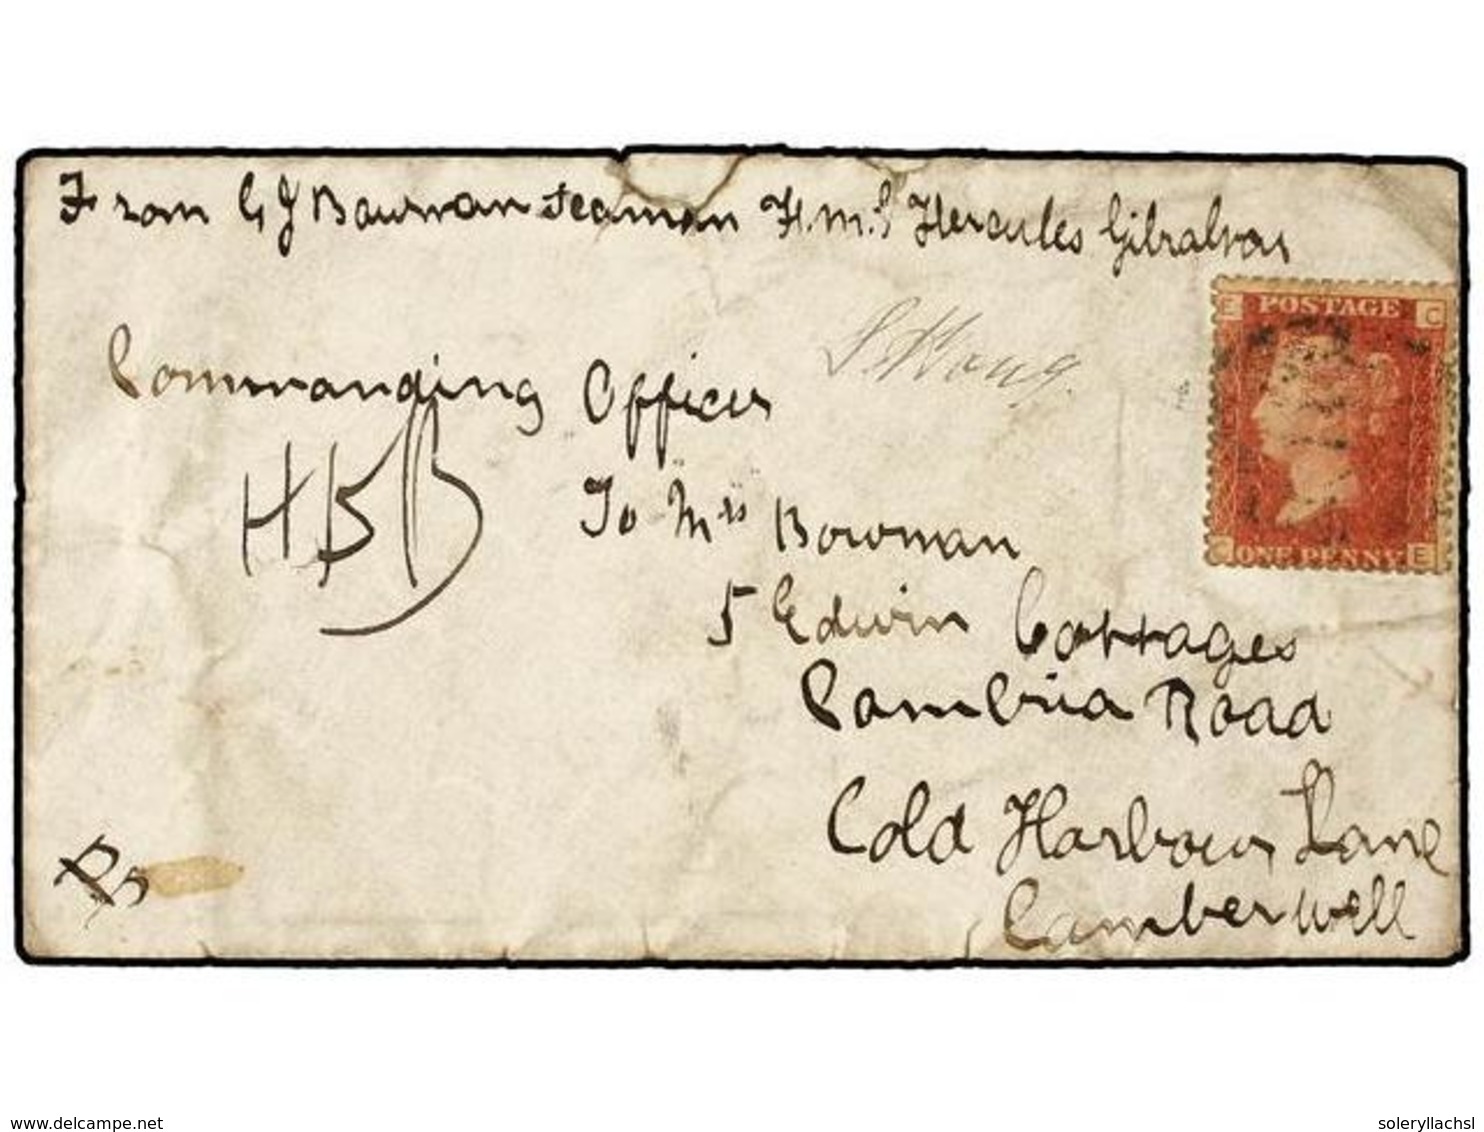 From G J Bowman Seaman H.M.S Hercules Gibraltar
Commanding Officer
HBB
To Mrs Bowman
5 Edwin Cottages
Cambria Road
Cold Harbour Lane
Camberwell
E POSTAGE C
C ONE PENNY E
www.delcampe.net
soleryllachsl